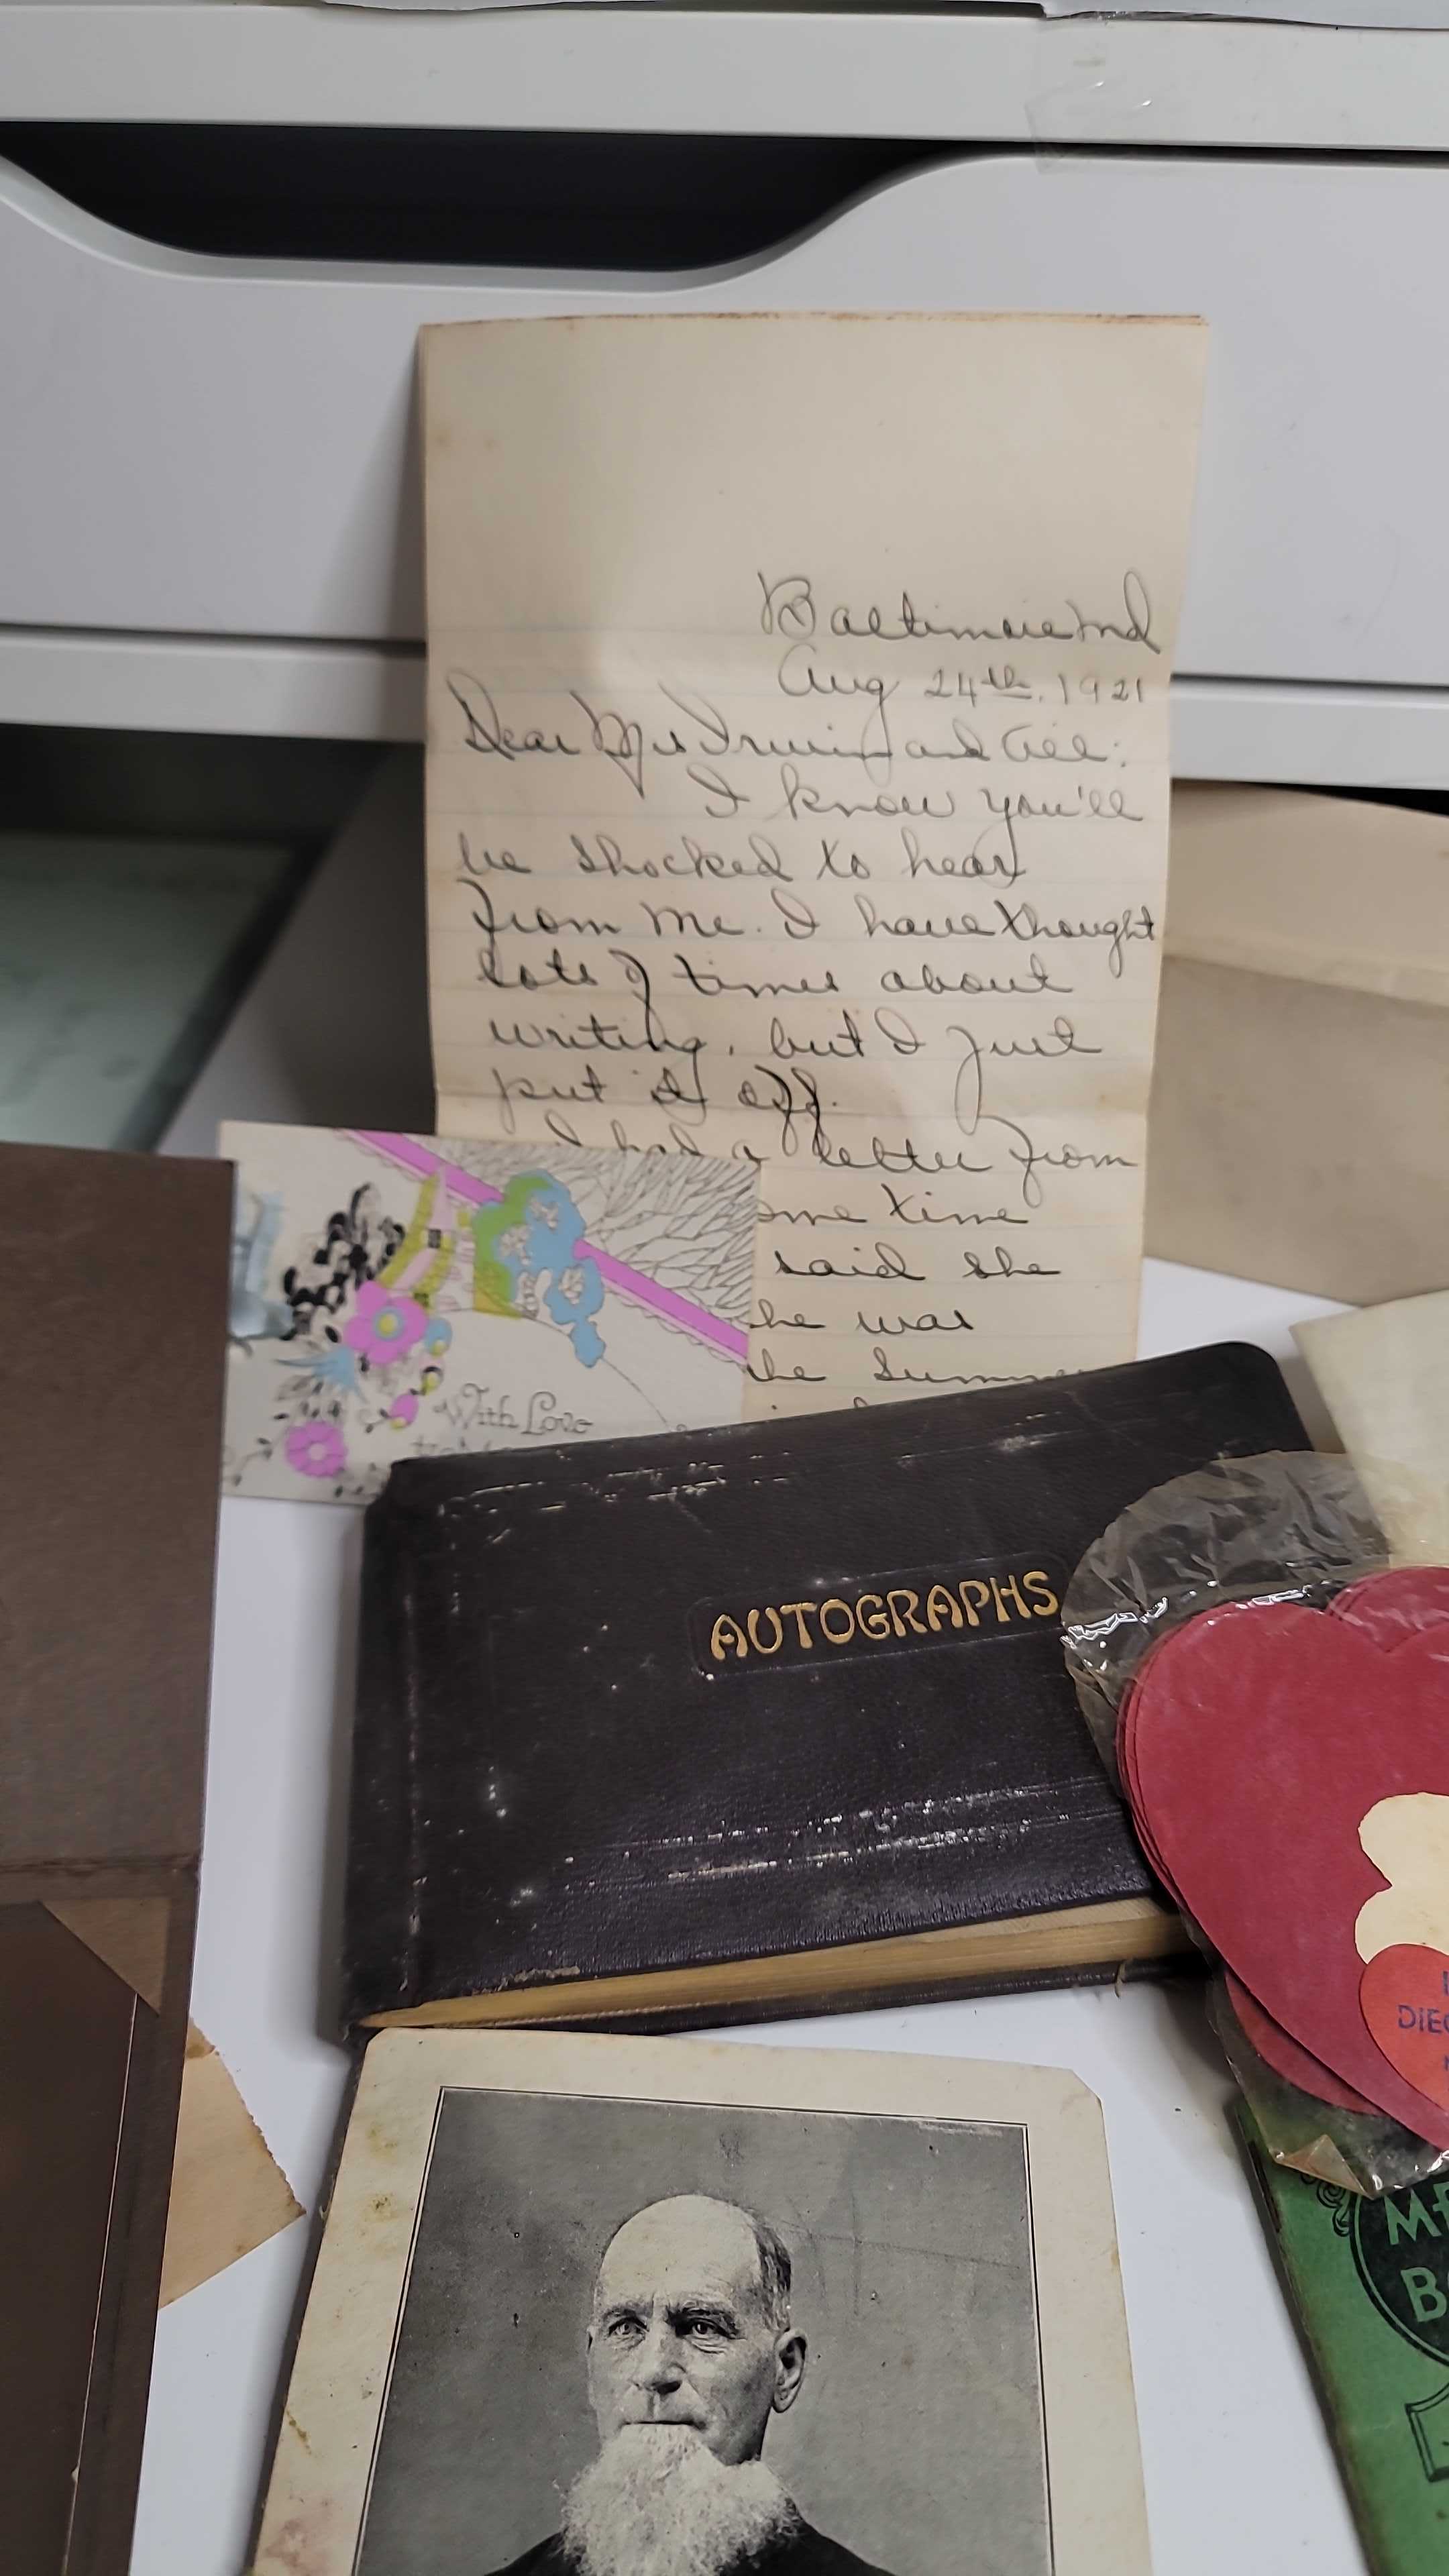 Baltimore Md
Aug 24th. 1921
Dear Mrs Irwin and All:
I know you'll
be shocked to hear
from me. I have thought
lots of times about
writing, but I just
put it off.
I had a letter from
time
said she
he was
the Summer
With Love
AUTOGRAPHS